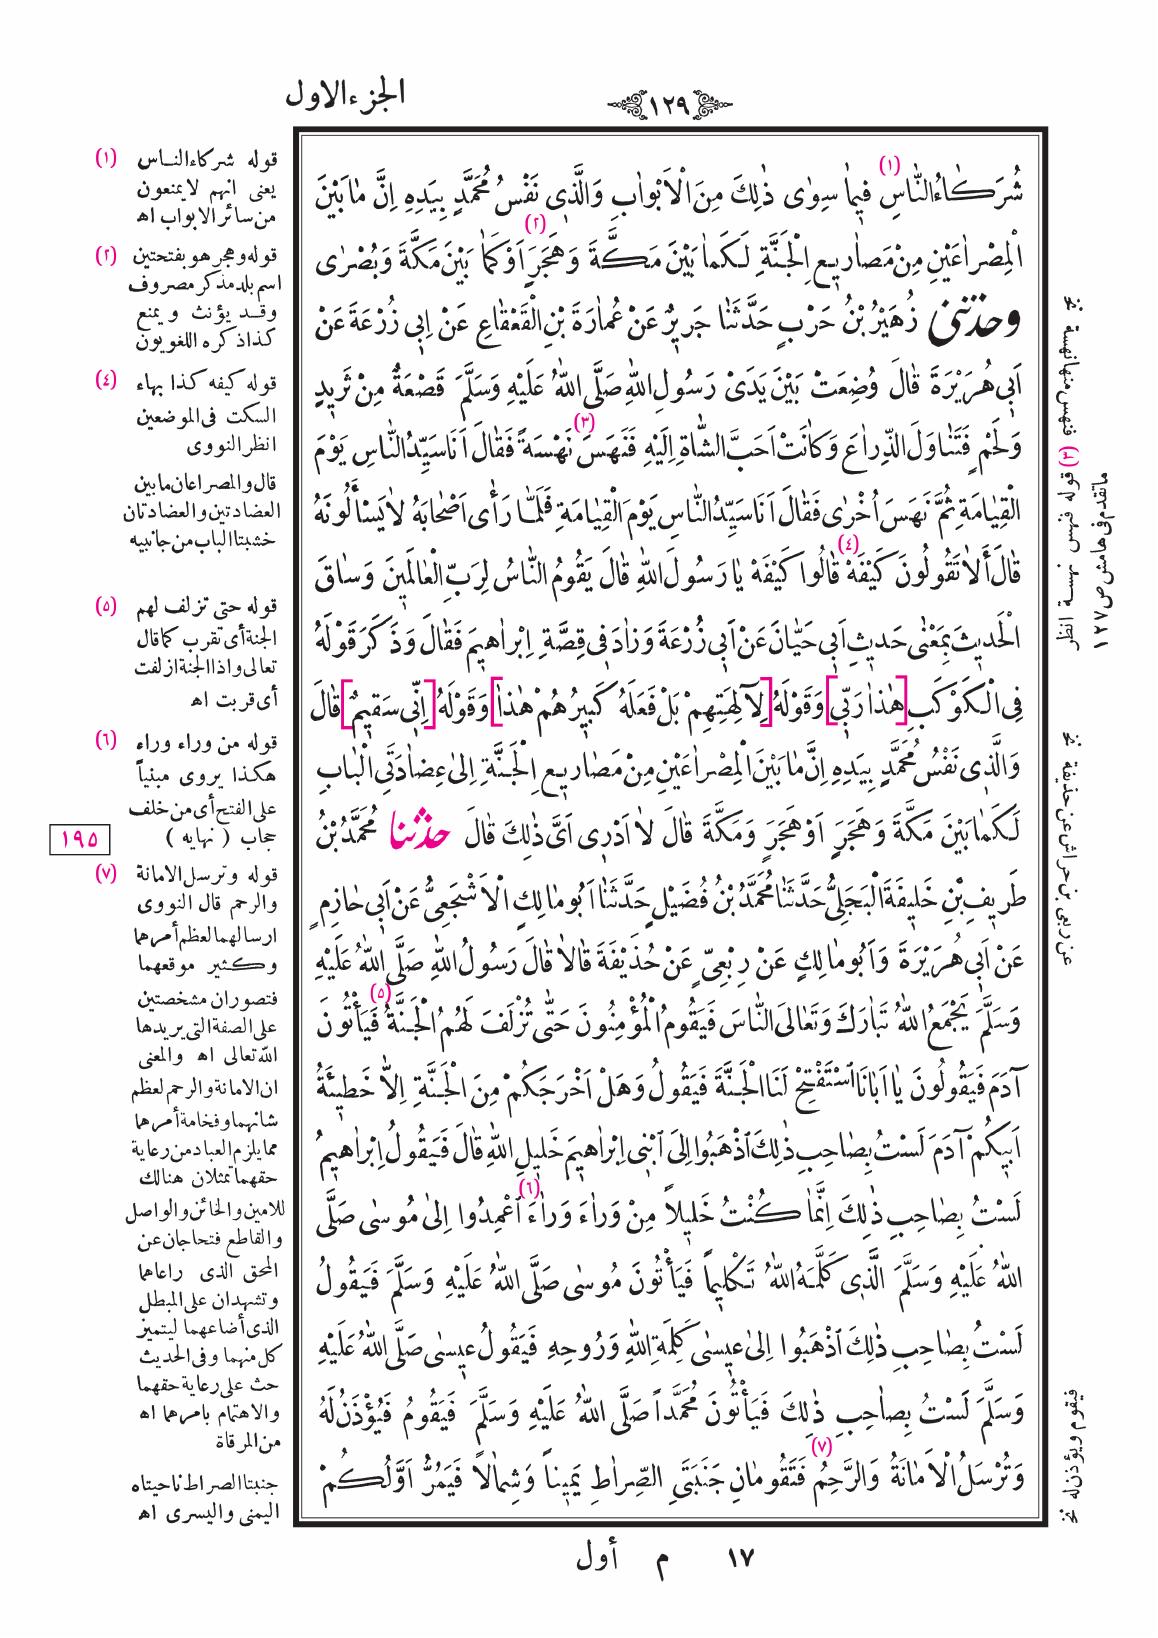 الجزء الاول
١٢٩
شُرَكَاءُ النَّاسِ (١) فِيمَا سِوَى ذٰلِكَ مِنَ الْاَبْوَابِ وَالَّذِى نَفْسُ مُحَمَّدٍ بِيَدِهِ اِنَّ مَا بَيْنَ
الْمِصْرَاعَيْنِ مِنْ مَصَارِيعِ الْجَنَّةِ لَكَمَا بَيْنَ مَكَّةَ وَهَجَرٍ (٢) اَوْ كَمَا بَيْنَ مَكَّةَ وَبُصْرَى
وحَدَّثَنِى زُهَيْرُ بْنُ حَرْبٍ حَدَّثَنَا جَرِيرٌ عَنْ عُمَارَةَ بْنِ الْقَعْقَاعِ عَنْ اَبِى زُرْعَةَ عَنْ
اَبِى هُرَيْرَةَ قَالَ وُضِعَتْ بَيْنَ يَدَىْ رَسُولِ اللهِ صَلَّى اللهُ عَلَيْهِ وَسَلَّمَ قَصْعَةٌ مِنْ ثَرِيدٍ
وَلَحْمٍ فَتَنَاوَلَ الذِّرَاعَ وَكَانَتْ اَحَبَّ الشَّاةِ اِلَيْهِ فَنَهَسَ (٣) نَهْسَةً فَقَالَ اَنَا سَيِّدُ النَّاسِ يَوْمَ
الْقِيَامَةِ ثُمَّ نَهَسَ اُخْرَى فَقَالَ اَنَا سَيِّدُ النَّاسِ يَوْمَ الْقِيَامَةِ فَلَمَّا رَأَى اَصْحَابَهُ لَا يَسْأَلُونَهُ
قَالَ أَلَا تَقُولُونَ كَيْفَهْ (٤) قَالُوا كَيْفَهْ يَا رَسُولَ اللهِ قَالَ يَقُومُ النَّاسُ لِرَبِّ الْعَالَمِينَ وَسَاقَ
الْحَدِيثَ بِمَعْنَى حَدِيثِ اَبِى حَيَّانَ عَنْ اَبِى زُرْعَةَ وَزَادَ فِى قِصَّةِ اِبْرَاهِيمَ فَقَالَ وَذَكَرَ قَوْلَهُ
فِى الْكَوْكَبِ [هٰذَا رَبِّى] وَقَوْلَهُ [لِآلِهَتِهِمْ بَلْ فَعَلَهُ كَبِيرُهُمْ هٰذَا] وَقَوْلَهُ [اِنِّى سَقِيمٌ] قَالَ
وَالَّذِى نَفْسُ مُحَمَّدٍ بِيَدِهِ اِنَّ مَا بَيْنَ الْمِصْرَاعَيْنِ مِنْ مَصَارِيعِ الْجَنَّةِ اِلَى عِضَادَتَىِ الْبَابِ
لَكَمَا بَيْنَ مَكَّةَ وَهَجَرٍ اَوْ هَجَرٍ وَمَكَّةَ قَالَ لَا اَدْرِى اَىَّ ذٰلِكَ قَالَ حَدَّثَنَا مُحَمَّدُ بْنُ
طَرِيفِ بْنِ خَلِيفَةَ الْبَجَلِىُّ حَدَّثَنَا مُحَمَّدُ بْنُ فُضَيْلٍ حَدَّثَنَا اَبُو مَالِكٍ الْاَشْجَعِىُّ عَنْ اَبِى حَازِمٍ
عَنْ اَبِى هُرَيْرَةَ وَاَبُو مَالِكٍ عَنْ رِبْعِىٍّ عَنْ حُذَيْفَةَ قَالَا قَالَ رَسُولُ اللهِ صَلَّى اللهُ عَلَيْهِ
وَسَلَّمَ يَجْمَعُ اللهُ تَبَارَكَ وَتَعَالَى النَّاسَ فَيَقُومُ الْمُؤْمِنُونَ حَتَّى تُزْلَفَ لَهُمُ الْجَنَّةُ (٥) فَيَأْتُونَ
آدَمَ فَيَقُولُونَ يَا اَبَانَا اسْتَفْتِحْ لَنَا الْجَنَّةَ فَيَقُولُ وَهَلْ اَخْرَجَكُمْ مِنَ الْجَنَّةِ اِلَّا خَطِيئَةُ
اَبِيكُمْ آدَمَ لَسْتُ بِصَاحِبِ ذٰلِكَ اذْهَبُوا اِلَى ابْنِى اِبْرَاهِيمَ خَلِيلِ اللهِ قَالَ فَيَقُولُ اِبْرَاهِيمُ
لَسْتُ بِصَاحِبِ ذٰلِكَ اِنَّمَا كُنْتُ خَلِيلًا مِنْ وَرَاءَ وَرَاءَ (٦) اعْمِدُوا اِلَى مُوسَى صَلَّى
اللهُ عَلَيْهِ وَسَلَّمَ الَّذِى كَلَّمَهُ اللهُ تَكْلِيمًا فَيَأْتُونَ مُوسَى صَلَّى اللهُ عَلَيْهِ وَسَلَّمَ فَيَقُولُ
لَسْتُ بِصَاحِبِ ذٰلِكَ اذْهَبُوا اِلَى عِيسَى كَلِمَةِ اللهِ وَرُوحِهِ فَيَقُولُ عِيسَى صَلَّى اللهُ عَلَيْهِ
وَسَلَّمَ لَسْتُ بِصَاحِبِ ذٰلِكَ فَيَأْتُونَ مُحَمَّدًا صَلَّى اللهُ عَلَيْهِ وَسَلَّمَ فَيَقُومُ فَيُؤْذَنُ لَهُ
وَتُرْسَلُ الْاَمَانَةُ وَالرَّحِمُ (٧) فَتَقُومَانِ جَنَبَتَىِ الصِّرَاطِ يَمِينًا وَشِمَالًا فَيَمُرُّ اَوَّلُكُمْ
١٧ م أول
(١) قوله شركاء الناس
يعنى انهم لايمنعون
من سائر الابواب اه
(٢) قوله وهجر هو بفتحتين
اسم بلد مذكر مصروف
وقد يؤنث ويمنع
كذا ذكره اللغويون
(٤) قوله كيفه كذا بهاء
السكت فى الموضعين
انظر النووى
قال والمصراعان مابين
العضادتين والعضادتان
خشبتا الباب من جانبيه
(٥) قوله حتى تزلف لهم
الجنة أى تقرب كما قال
تعالى واذا الجنة ازلفت
أى قربت اه
(٦) قوله من وراء وراء
هكذا يروى مبنياً
على الفتح أى من خلف
حجاب ( نهايه )
١٩٥
(٧) قوله وترسل الامانة
والرحم قال النووى
ارسالهما لعظم أمرهما
وكثير موقعهما
فتصوران مشخصتين
على الصفة التى يريدها
الله تعالى اه والمعنى
ان الامانة والرحم لعظم
شانهما وفخامة أمرهما
مما يلزم العباد من رعاية
حقهما تمثلان هنالك
للامين والخائن والواصل
والقاطع فتحاجان عن
المحق الذى راعاهما
وتشهدان على المبطل
الذى أضاعهما ليتميز
كل منهما وفى الحديث
حث على رعاية حقهما
والاهتمام بامرهما اه
من المرقاة
جنبتا الصراط ناحيتاه
اليمنى واليسرى اه
فنهس منها نهسة نخ
(٣) قوله فنهس نهسة انظر
ماتقدم فى هامش ص ١٢٧
عن ربعى بن حراش عن حذيفة نخ
فيقوم ويؤذن له نخ